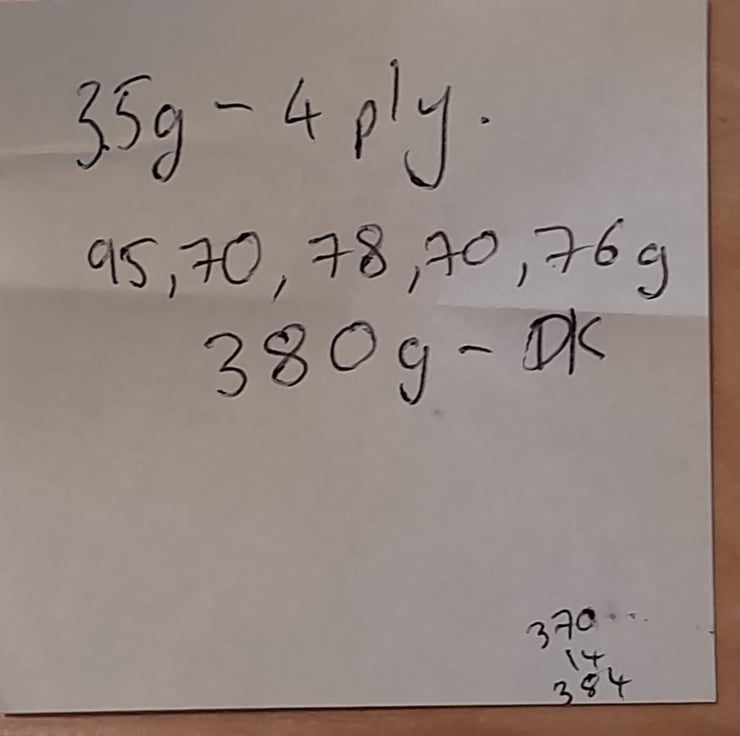 35g - 4 ply.
95, 70, 78, 70, 76g
380g - DK
370
14
384